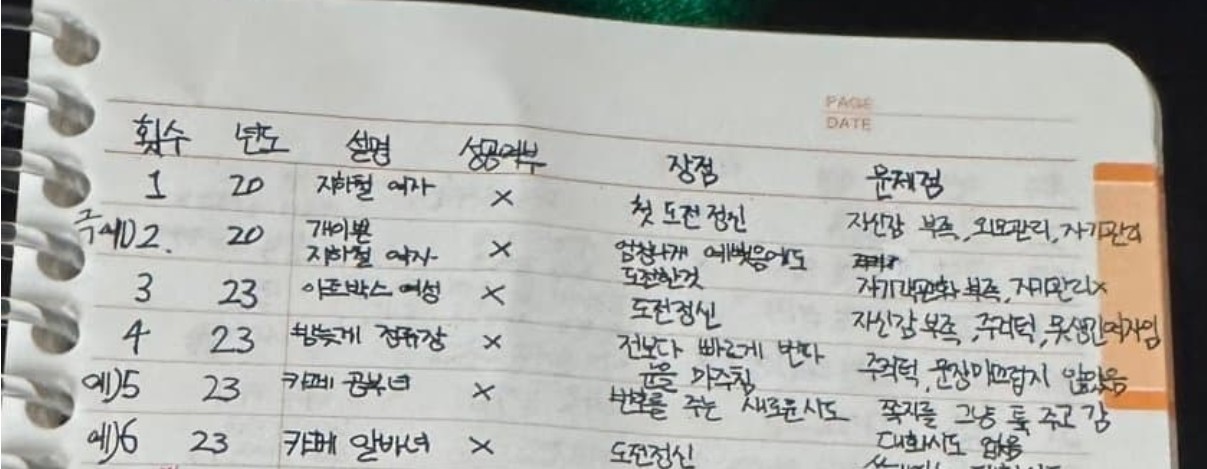 PAGE
DATE
횟수 년도 설명 성공여부 장점 문제점
1 20 지하철 여자 × 첫 도전정신 자신감 부족, 외모관리, 자기관리
2. 20 개이쁜 지하철 여자 × 엄청나게 예뻤음에도 도전한것 자기객관화 부족, 자기관리×
3 23 아트박스 여성 × 도전정신 자신감 부족, 주걱턱, 못생긴여자임
4 23 밤늦게 정류장 × 전보다 빠르게 번따 눈을 마주침 주걱턱, 문장매끄럽지 않았음
예)5 23 카페 공부녀 × 번호를 주는 새로운시도 쪽지를 그냥 툭 주고 감 대화시도 없음
예)6 23 카페 알바녀 × 도전정신